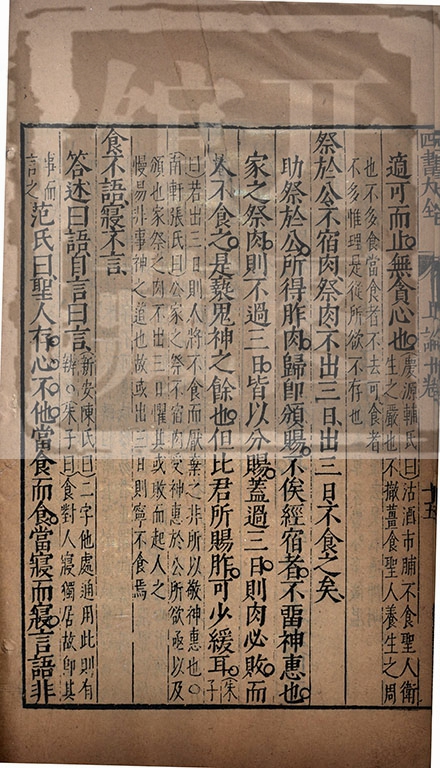 四書大全
上論十卷
十五
適可而止無貪心也慶源輔氏曰沽酒市脯不食聖人衛
生之嚴也不撤薑食聖人養生之周
也不多食當食者不去可食者
不多惟理是從所欲不存也
祭於公不宿肉祭肉不出三日出三日不食之矣
助祭於公所得胙肉歸即頒賜不俟經宿者不留神惠也
家之祭肉則不過三日皆以分賜蓋過三日則肉必敗而
人不食之是褻鬼神之餘也但比君所賜胙可少緩耳朱子
曰若出三日則人將不食而厭棄之非所以敬神惠也○
南軒張氏曰公家之祭不宿肉受神惠於公所欲亟以及
頒也家祭之肉不出三日懼其或敗而起人之
慢易非事神之道也故或出三日則寧不食焉
食不語寢不言
答述曰語自言曰言新安陳氏曰二字他處通用此則有
辨○朱子曰食對人寢獨居故即其
事而
言之范氏曰聖人存心不他當食而食當寢而寢言語非